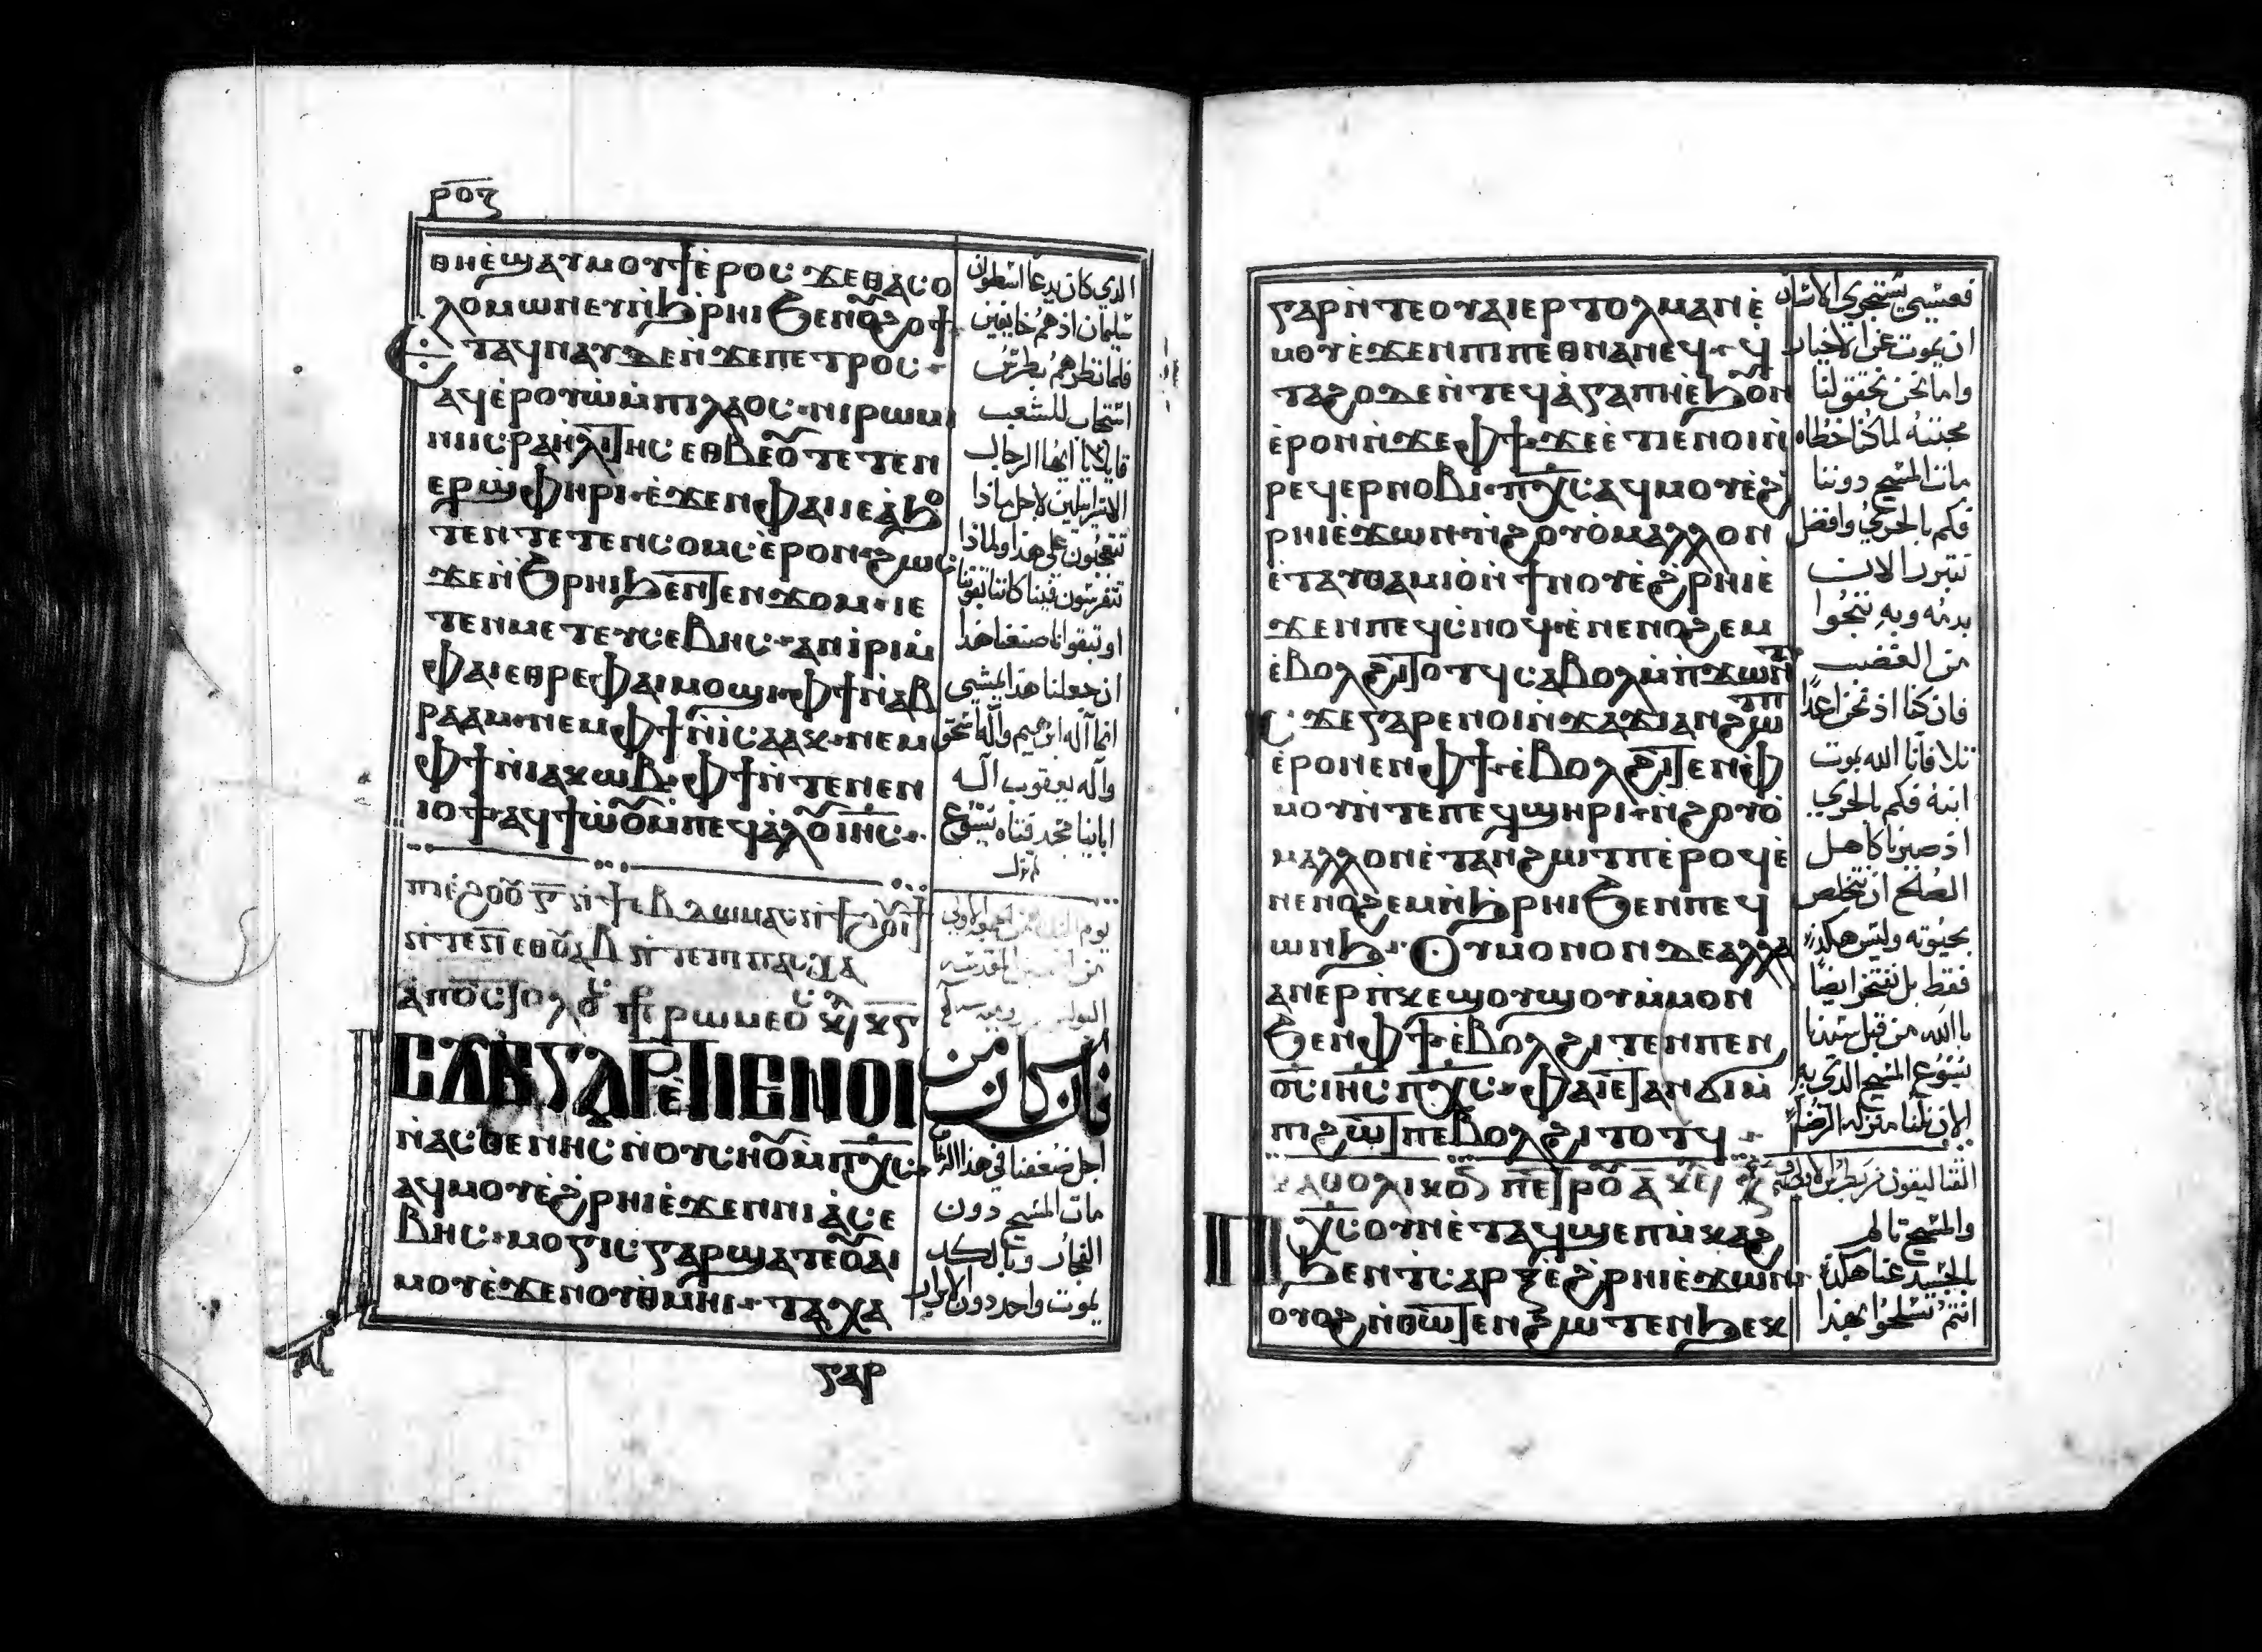 ⲣⲟⲍ
ⲑⲏⲉ̀ϣⲁⲩⲙⲟⲩϯⲉ̀ⲣⲟⲥ ϫⲉⲑⲁⲥⲟ
ⲗⲟⲙⲱⲛⲉⲩⲛ̀ϧ̀ⲣⲏⲓϧⲉⲛⲟϩⲟϯ
ⲉⲧⲁϥⲛⲁⲩⲇⲉⲛ̀ϫⲉⲡⲉⲧⲣⲟⲥ
ⲁϥⲉ̀ⲣⲟⲩⲱ̀ⲙ̀ⲡⲓⲗⲁⲟⲥ ⲛⲓⲣⲱⲙⲓ
ⲛⲓⲓⲥⲣⲁⲏ̀ⲗⲓⲧⲏⲥ ⲉⲑⲃⲉⲟ ⲧⲉⲧⲉⲛ
ⲉⲣϣⲫⲏⲣⲓ ⲉ̀ϫⲉⲛⲫⲁⲓⲓⲉⲁ̀ϧⲟ
ⲧⲉⲛⲧⲉⲧⲉⲛⲥⲟⲙⲥⲉ̀ⲣⲟⲛ ϩⲱⲥ
ϫⲉⲛ̀ϧⲣⲏⲓϧⲉⲛⲧⲉⲛϫⲟⲙ ⲓⲉ
ⲧⲉⲛⲙⲉⲧⲉⲩⲥⲉⲃⲏⲥ ⲁⲛⲓ̀ⲣⲓⲙ̀
ⲫⲁⲓⲉⲑⲣⲉⲫⲁⲓⲙⲟϣⲓ ⲫϯⲛ̀ⲁⲃ
ⲣⲁⲁⲙ ⲛⲉⲙⲫϯⲛ̀ⲓⲥⲁⲁⲕ ⲛⲉⲙ
ⲫϯⲛ̀ⲓⲁⲕⲱⲃ ⲫϯⲛ̀ⲧⲉⲛⲉⲛ
ⲓⲟϯ ⲁϥϯⲱ̀ⲟⲙ̀ⲡⲉϥⲁ̀ⲗⲟⲓⲏⲥ
الذي كان يدعا اسطوان
سليمان اذ هم خايفين
فلما نظرهم بطرس
استجاب للشعب
قايلا يا ايها الرجال
الاسرايليين لاجل ماذا
تتعجبون على هذا ولماذا
تتفرسون فينا كاننا بقوتنا
او تبقوانا صنعنا هذا
ان جعلنا هذا يمشي
انما اله ابرهيم واله اسحق
واله يعقوب اله
اباينا مجد فتاه يسوع
ⲁⲡⲟⲥⲧⲟⲗⲟ ⲡⲣ ⲣⲱⲙⲉⲟ
ⲉⲑⲃⲉⲅⲁⲣⲉ̀ⲧⲓⲉⲛⲟⲓ
ⲛ̀ⲁⲥⲑⲉⲛⲏⲥ ⲛ̀ⲟⲩⲥⲏⲟⲙ̀ⲡⲭⲥ
ⲁϥⲙⲟⲩⲉ̀ϩ̀ⲣⲏⲓⲉ̀ϫⲉⲛⲛⲓⲁ̀ⲥⲉ
ⲃⲏⲥ ⲙⲟⲅⲓⲥⲅⲁⲣϣⲁⲧⲉⲟⲁⲓ
ⲙⲟⲩⲉ̀ϫⲉⲛⲟⲩⲑ̀ⲙⲏⲓ ⲧⲁⲭⲁ
فان كان من
اجل ضعفنا في هذا الزمان
مات المسيح دون
الفجار وبالكد
يموت واحد دون الابرار
ⲅⲁⲣ
ⲅⲁⲣⲛ̀ⲧⲉⲟⲩⲁⲓⲉⲣⲧⲟⲗⲙⲁⲛⲉ̀
ⲙⲟⲩⲉ̀ϫⲉⲛⲡⲓⲡⲉⲑⲛⲁⲛⲉϥ ϥ
ⲧⲁϩⲟⲇⲉⲛ̀ⲧⲉϥⲁ̀ⲅⲁⲡⲏⲉ̀ϧⲟⲛ
ⲉ̀ⲣⲟⲛⲛ̀ϫⲉⲫϯ ϫⲉⲉⲧⲓⲉⲛⲟⲓⲛ̀
ⲣⲉϥⲉⲣⲛⲟⲃⲓ ⲡⲭⲥⲁϥⲙⲟⲩⲉ̀ϩ
ⲣⲏⲓⲉ̀ϫⲱⲛ ⲛ̀ϩⲟⲩⲟ̀ⲙⲁⲗⲗⲟⲛ
ⲉ̀ⲧⲁⲩⲑⲁⲙⲓⲟⲛ̀ϯⲛⲟⲩⲉ̀ϩ̀ⲣⲏⲓⲉ̀
ϫⲉⲛⲡⲉϥⲥ̀ⲛⲟϥ ⲉ̀ⲛⲉⲛⲟϩⲉⲙ
ⲉ̀ⲃⲟⲗϩⲓⲧⲟⲧϥⲥⲁⲃⲟⲗⲙ̀ⲡϫⲱⲛⲧ
ⲓⲥϫⲉⲅⲁⲣⲉⲛⲟⲓⲛ̀ϫⲁϫⲓⲁⲛϩⲱⲧⲡ
ⲉ̀ⲣⲟⲛⲉⲛⲫϯ ⲉ̀ⲃⲟⲗϩⲓⲧⲉⲛⲫ
ⲙⲟⲩⲛ̀ⲧⲉⲡⲉϥϣⲏⲣⲓ ⲛ̀ϩⲟⲩⲟ̀
ⲙⲁⲗⲗⲟⲛⲉ̀ⲧⲁⲛϩⲱⲧⲡⲉ̀ⲣⲟϥⲉ̀
ⲛⲉⲛⲟϩⲉⲙⲛ̀ϧ̀ⲣⲏⲓϧⲉⲛⲡⲉϥ
ⲱⲛϧ ⲟⲩⲙⲟⲛⲟⲛⲇⲉⲁⲗⲗⲁ
ⲁⲛⲉⲣⲡⲕⲉϣⲟⲩϣⲟⲩⲙ̀ⲙⲟⲛ
ϧⲉⲛⲫϯ ⲉ̀ⲃⲟⲗϩⲓⲧⲉⲛⲡⲉⲛ
ⲟⲥ ⲓⲏⲥ ⲡⲭⲥ ⲫⲁⲓⲉⲧⲁⲛϭⲓⲙ̀
ⲡⲓϩⲱⲧⲡⲉⲃⲟⲗϩⲓⲧⲟⲧϥ
فعسى يستجري الانسان
ان يموت عن الاخيار
واما نحن تحقق لنا
محبته لما كنا خطاه
مات المسيح دوننا
فكم بالحري وافضل
نتبرر الان
بدمه وبه ننجوا
من الغضب
فان كنا اذ نحن اعدا
تلافانا الله بموت
ابنه فكم بالحري
اذ صيرنا كاهل
الصلح ان نتخلص
بحيوته وليس هكذا
فقط بل نفتخر ايضا
بالله من قبل سيدنا
يسوع المسيح الذي به
الان نلنا منزلة الرضا
ⲕⲁⲑⲟⲗⲓⲕⲟⲛ ⲡⲉⲧⲣⲟ ⲁ
ⲡⲭⲥⲟⲩⲛⲉ̀ⲧⲁϥϣⲉⲡⲙ̀ⲕⲁϩ
ϧⲉⲛⲧⲥⲁⲣⲝⲉ̀ϩ̀ⲣⲏⲓⲉ̀ϫⲱⲛ
ⲟⲩⲟϩⲛ̀ⲑⲱⲧⲉⲛϩⲱⲧⲉⲛϧⲉⲕ
والمسيح تالم
بالجسد عنا هكذا
انتم تسلحوا بهذا